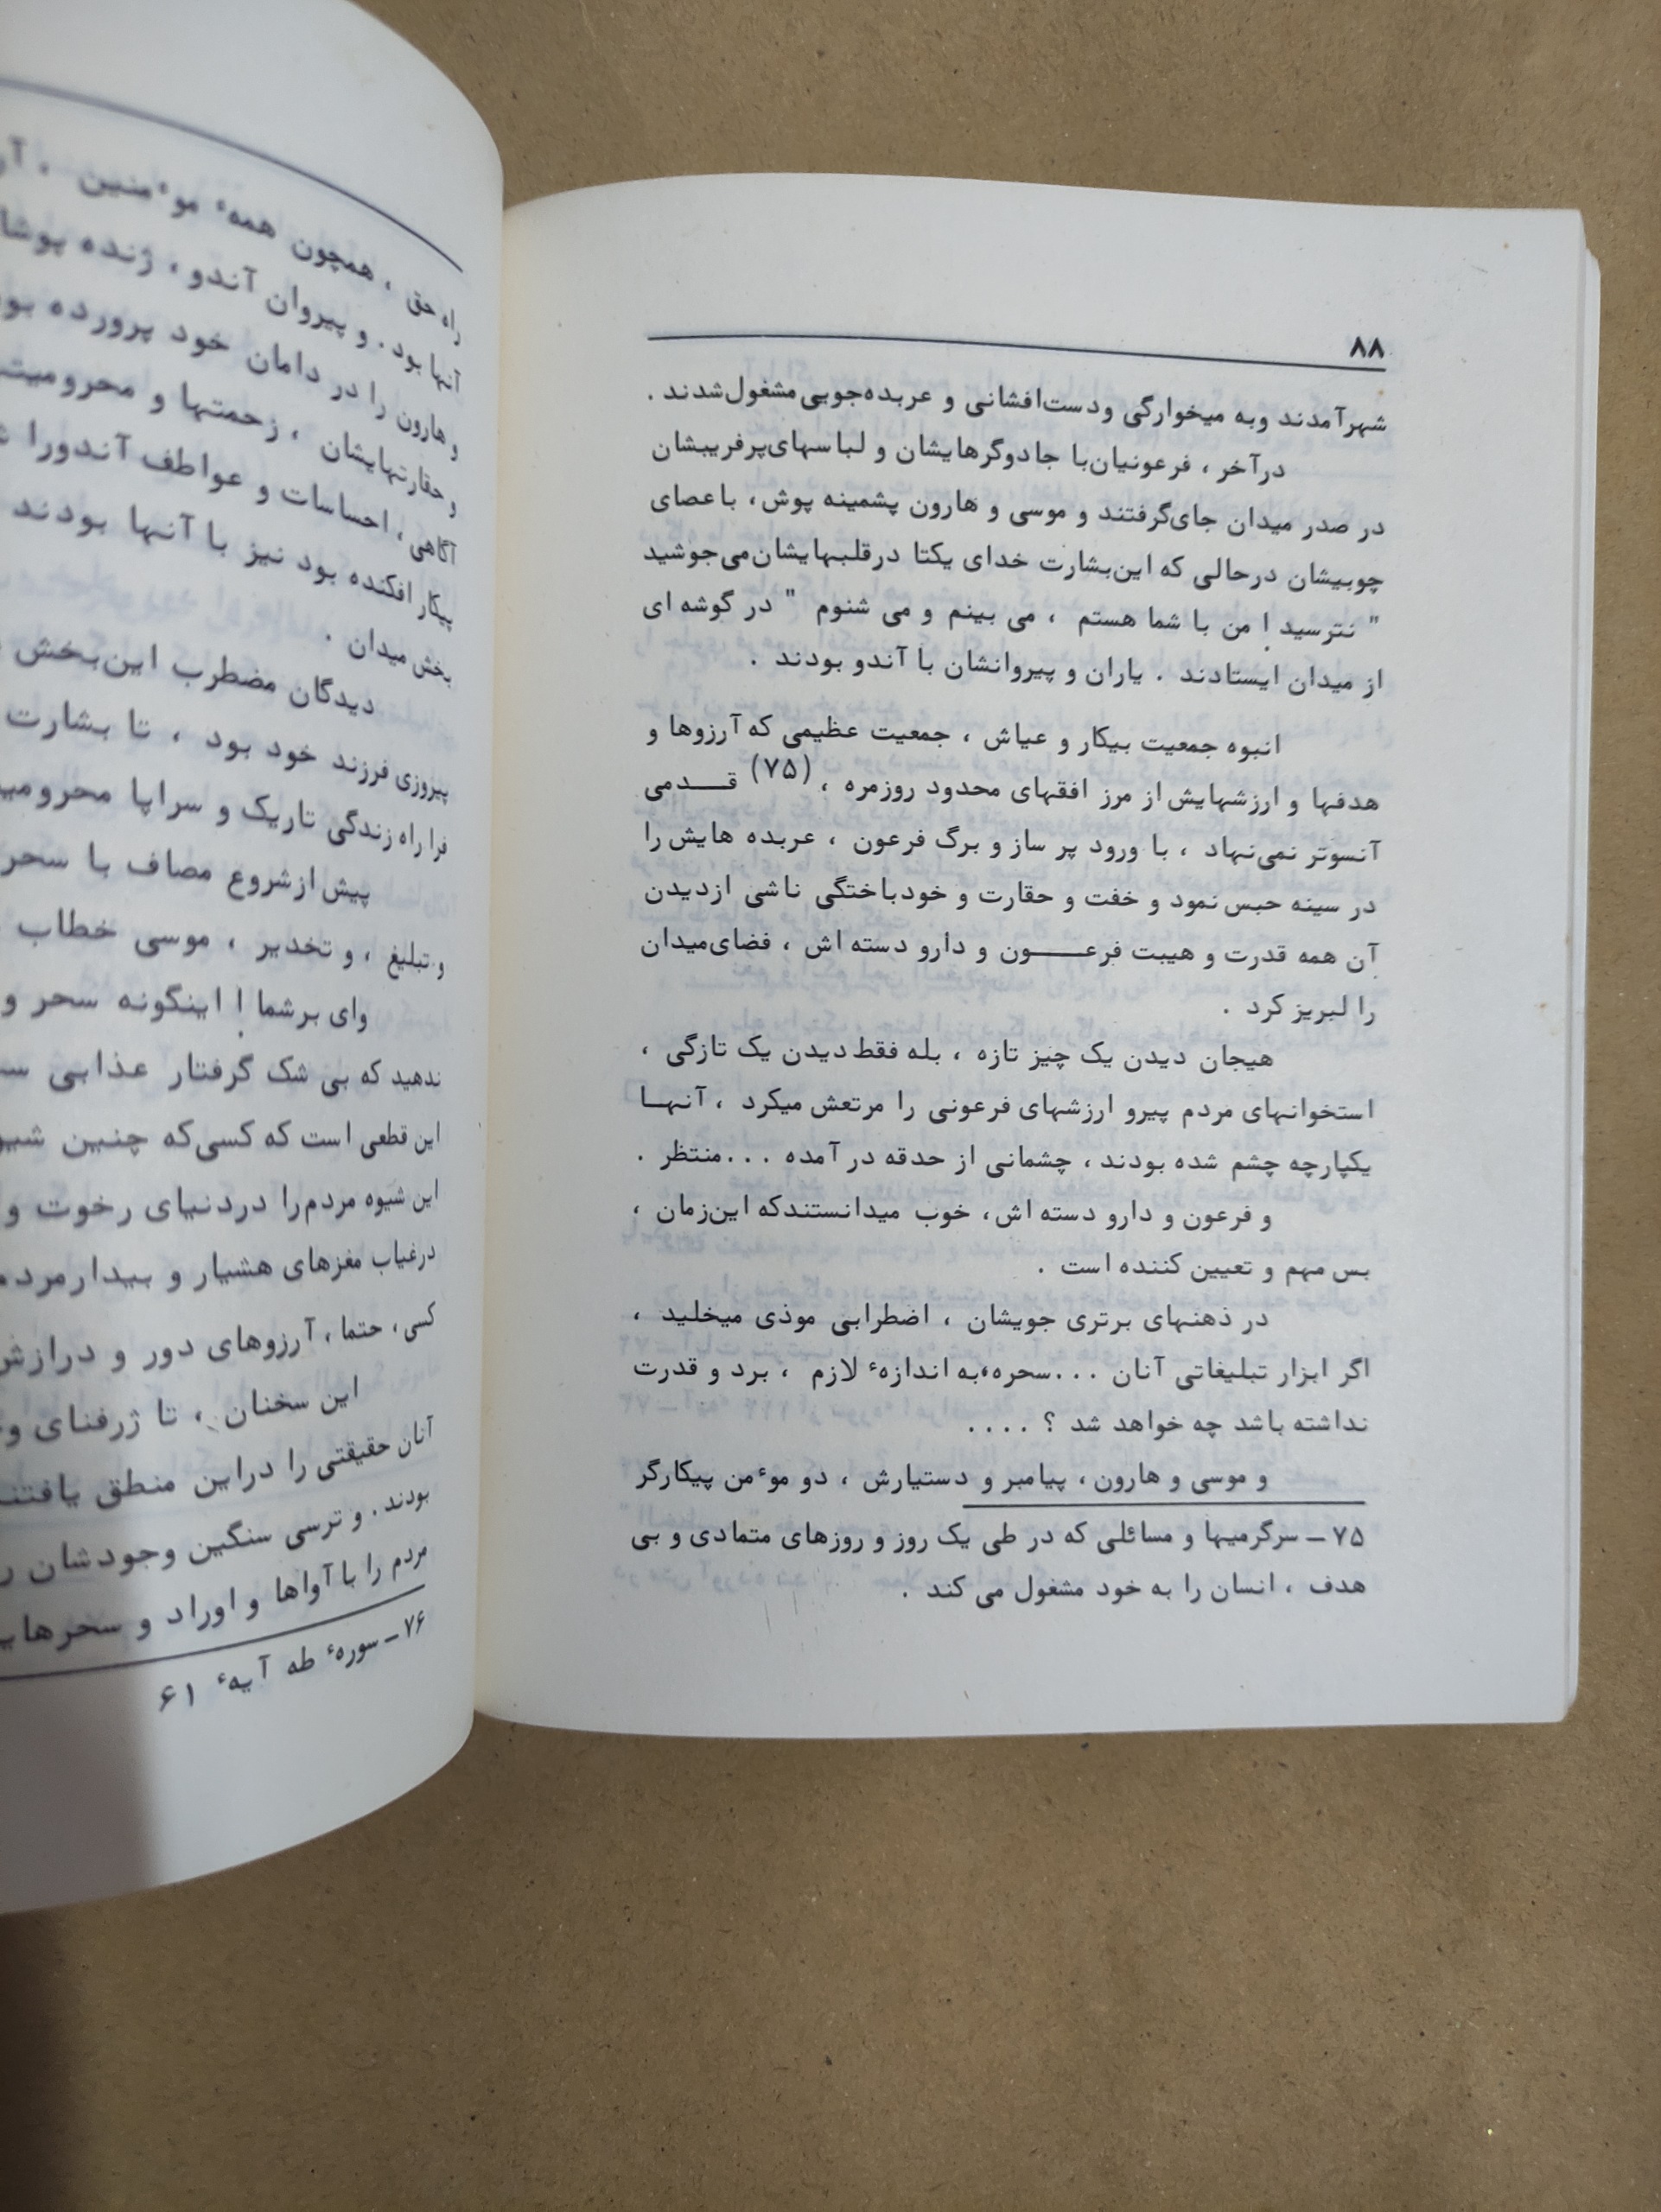 ۸۸
شهرآمدند وبه میخوارگی ودست‌افشانی و عربده‌جویی مشغول‌شدند .
درآخر ، فرعونیان‌با جادوگرهایشان و لباسهای‌پرفریبشان
در صدر میدان جای‌گرفتند و موسی و هارون پشمینه پوش، باعصای
چوبیشان درحالی که این‌بشارت خدای یکتا درقلبهایشان‌می‌جوشید
" نترسید ! من با شما هستم ، می بینم و می شنوم " در گوشه ای
از میدان ایستادند . یاران و پیروانشان با آندو بودند .
انبوه جمعیت بیکار و عیاش ، جمعیت عظیمی که آرزوها و
هدفها و ارزشهایش از مرز افقهای محدود روزمره ، (۷۵) قـــدمی
آنسوتر نمی‌نهاد ، با ورود پر ساز و برگ فرعون ، عربده هایش را
در سینه حبس نمود و خفت و حقارت و خودباختگی ناشی ازدیدن
آن همه قدرت و هیبت فرعــــون و دارو دسته اش ، فضای‌میدان
را لبریز کرد .
هیجان دیدن یک چیز تازه ، بله فقط دیدن یک تازگی ،
استخوانهای مردم پیرو ارزشهای فرعونی را مرتعش میکرد ، آنهـا
یکپارچه چشم شده بودند ، چشمانی از حدقه در آمده ...منتظر .
و فرعون و دارو دسته اش، خوب میدانستندکه این‌زمان ،
بس مهم و تعیین کننده است .
در ذهنهای برتری جویشان ، اضطرابی موذی میخلید ،
اگر ابزار تبلیغاتی آنان ...سحره،به اندازهٔ لازم ، برد و قدرت
نداشته باشد چه خواهد شد ؟ ....
و موسی و هارون، پیامبر و دستیارش ، دو موٴمن پیکارگر
۷۵ - سرگرمیها و مسائلی که در طی یک روز و روزهای متمادی و بی
هدف ، انسان را به خود مشغول می کند .
راه حق ، همچون همهٔ موٴمنین ،
آنها بود. و پیروان آندو ، ژنده
و هارون را در دامان خود پرورده
و حقارتهایشان ، زحمتها و
آگاهی ، احساسات و عواطف آندورا
پیکار افکنده بود نیز با آنها بودند
بخش میدان .
دیدگان مضطرب این‌بخش
پیروزی فرزند خود بود ، تا بشارت
فرا راه زندگی تاریک و سراپا
پیش ازشروع مصاف با سحر
و تبلیغ ، و تخدیر ، موسی خطاب
وای برشما ! اینگونه سحر و
ندهید که بی شک گرفتار عذابی
این قطعی است که کسی‌که چنین
این شیوه مردم‌را دردنیای رخوت و
درغیاب مغزهای هشیار و بیدار
کسی ، حتما ، آرزوهای دور و
این سخنان ، تا ژرفنای
آنان حقیقتی را دراین منطق
بودند. و ترسی سنگین وجودشان
مردم را با آواها و اوراد و
۷۶ - سورهٔ طه آیهٔ ۶۱